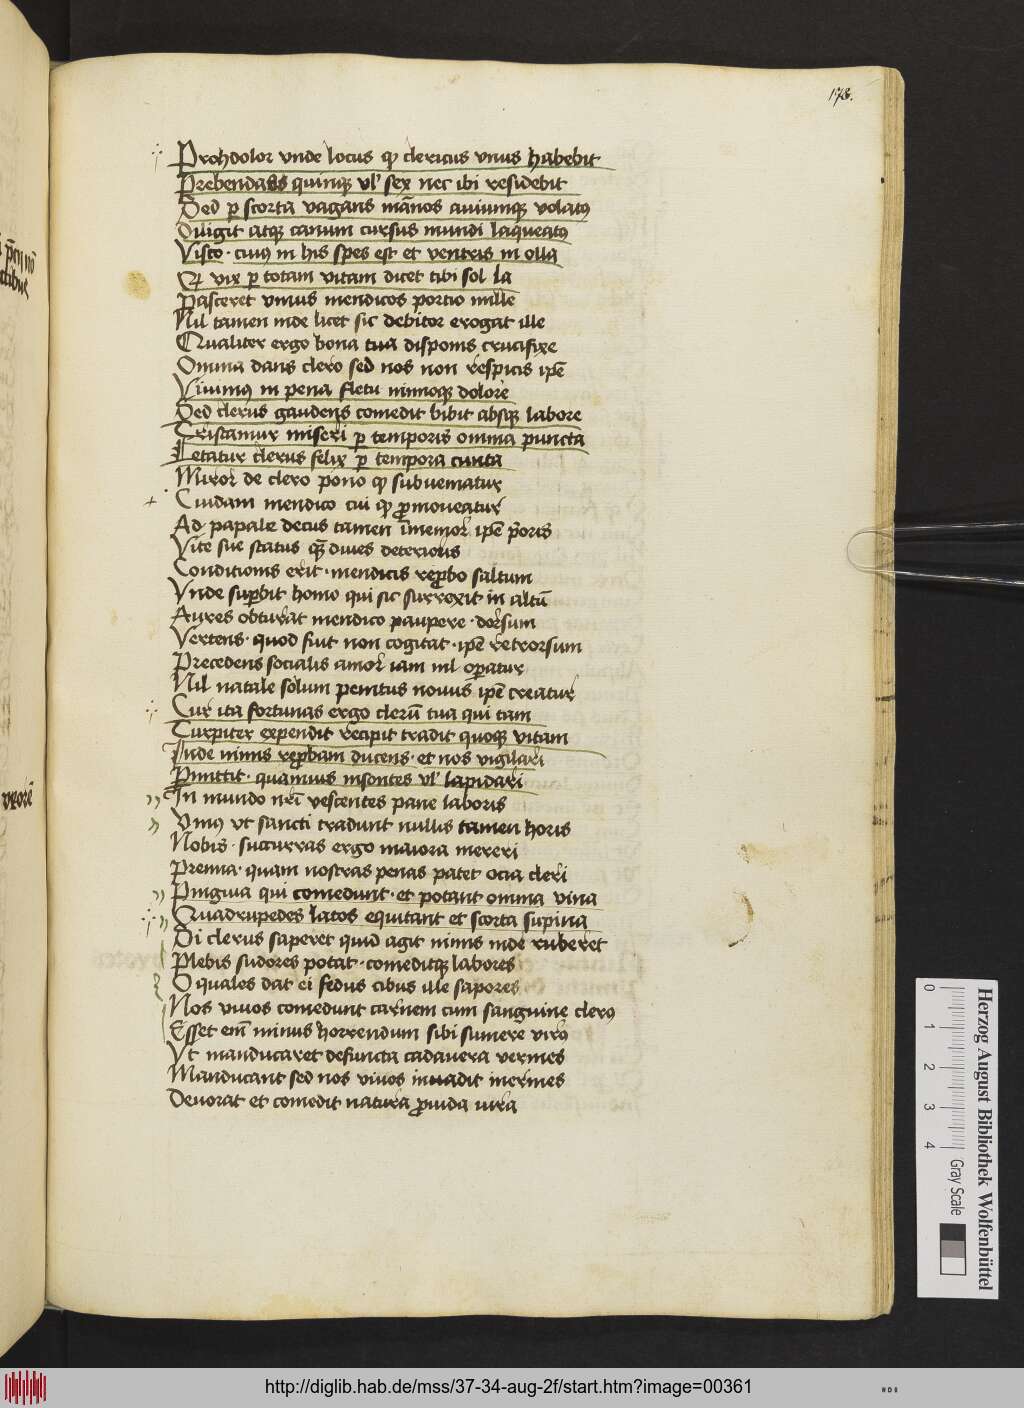 178.
Prohdolor vnde locus qͻ clericus vnus habebit
Prebendas quinqꝫ vl' sex nec ibi residebit
Sed ꝑ scorta vagans mānos auiumqꝫ volatꝯ
Diligit atqꝫ canum cursus mundi laqueatꝯ
Visco · cuiꝯ in his spes est et ventris in olla
Et vix ꝑ totam vitam dicet tibi sol la
Pasceret vnius mendicos portio mille
Nil tamen inde licet sic debitor erogat ille
Qualiter ergo bona tua disponis crucifixe
Omnia dans clero sed nos non respicis ip̄e
Viuimꝯ in pena fletu nimioqꝫ dolore
Sed clerus gaudens comedit bibit absqꝫ labore
Tristamur miseri ꝑ temporis omnia puncta
Letatur clerus felix ꝑ tempora cuncta
Miror de clero pono qͻ subueniatur
Cuidam mendico cui qͻ ꝓmoueatur
Ad papale decus tamen īmemor ip̄e p̄oris
Vite sue status qͣꝫ diues deterioris
Conditionis erit · mendicis reꝓbo saltum
Vnde suꝑbit homo qui sic surrexit in altū
Aures obturat mendico paupere · dorsum
Vertens · quod fuit non cogitat · ip̄e retrorsum
Precedens socialis amor iam nil oꝑatur
Nil natale solum penitus nouus ip̄e creatur
Cur ita fortunas ergo clerū tua qui tam
Turpiter expendit recipit tradit quoqꝫ vitam
Inde nimis reꝓbam ducens · et nos vigilari
Pmittit · quamuis insontes vl' lapidari
In mundo nr̄i vescentes pane laboris
Vniꝯ vt sancti tradunt nullis tamen horis
Nobis · succurras ergo maiora mereri
Premia · quam nostras penas patet ocia cleri
Pinguia qui comedunt · et potant omnia vina
Quadrupedes latos equitant et scorta supina
Si clerus saperet quid agit nimis inde ruberet
Plebis sudores potat · comeditqꝫ labores
O quales dat ei fedus cibus ille sapores
Nos viuos comedunt carnem cum sanguine clerꝯ
Esset em̄ minus horrendum sibi sumere virꝯ
Vt manducaret defuncta cadauera vermes
Manducant sed nos viuos inuadit inermes
Deuorat et comedit natura ꝓuida iura
uxorē
Herzog August Bibliothek Wolfenbüttel
0 1 2 3 4 Gray Scale
http://diglib.hab.de/mss/37-34-aug-2f/start.htm?image=00361